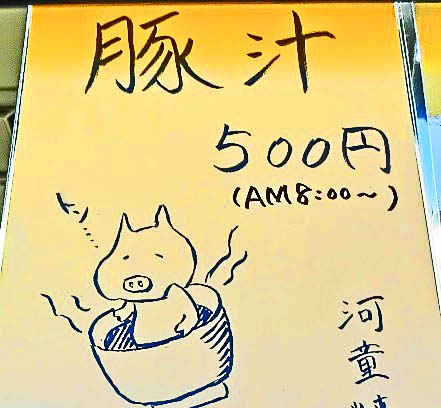 豚汁
500円
(AM8:00～)
トン……
河童